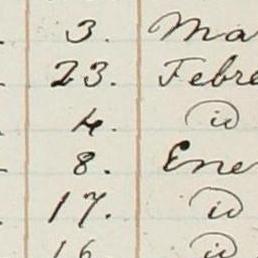 3. Ma
23. Febre
4. id
8. Ene
17. id
16. id